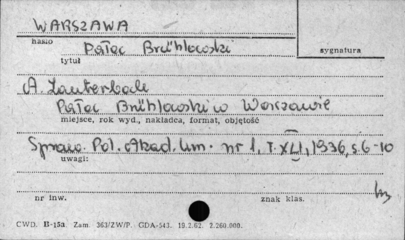 WARSZAWA
hasło
Pałac Brühlowski
sygnatura
tytuł
A. Lauterbach
Pałac Brühlowski w Warszawie
miejsce, rok wyd., nakładca, format, objętość
Spraw. Pol. Akad. Um. nr 1, T. XLI, 1936, s. 6-10
uwagi:
nr inw.
znak klas.
CWD. H-15a. Zam 363/ZW/P. GDA-543. 19.2.62. 2.260.000.